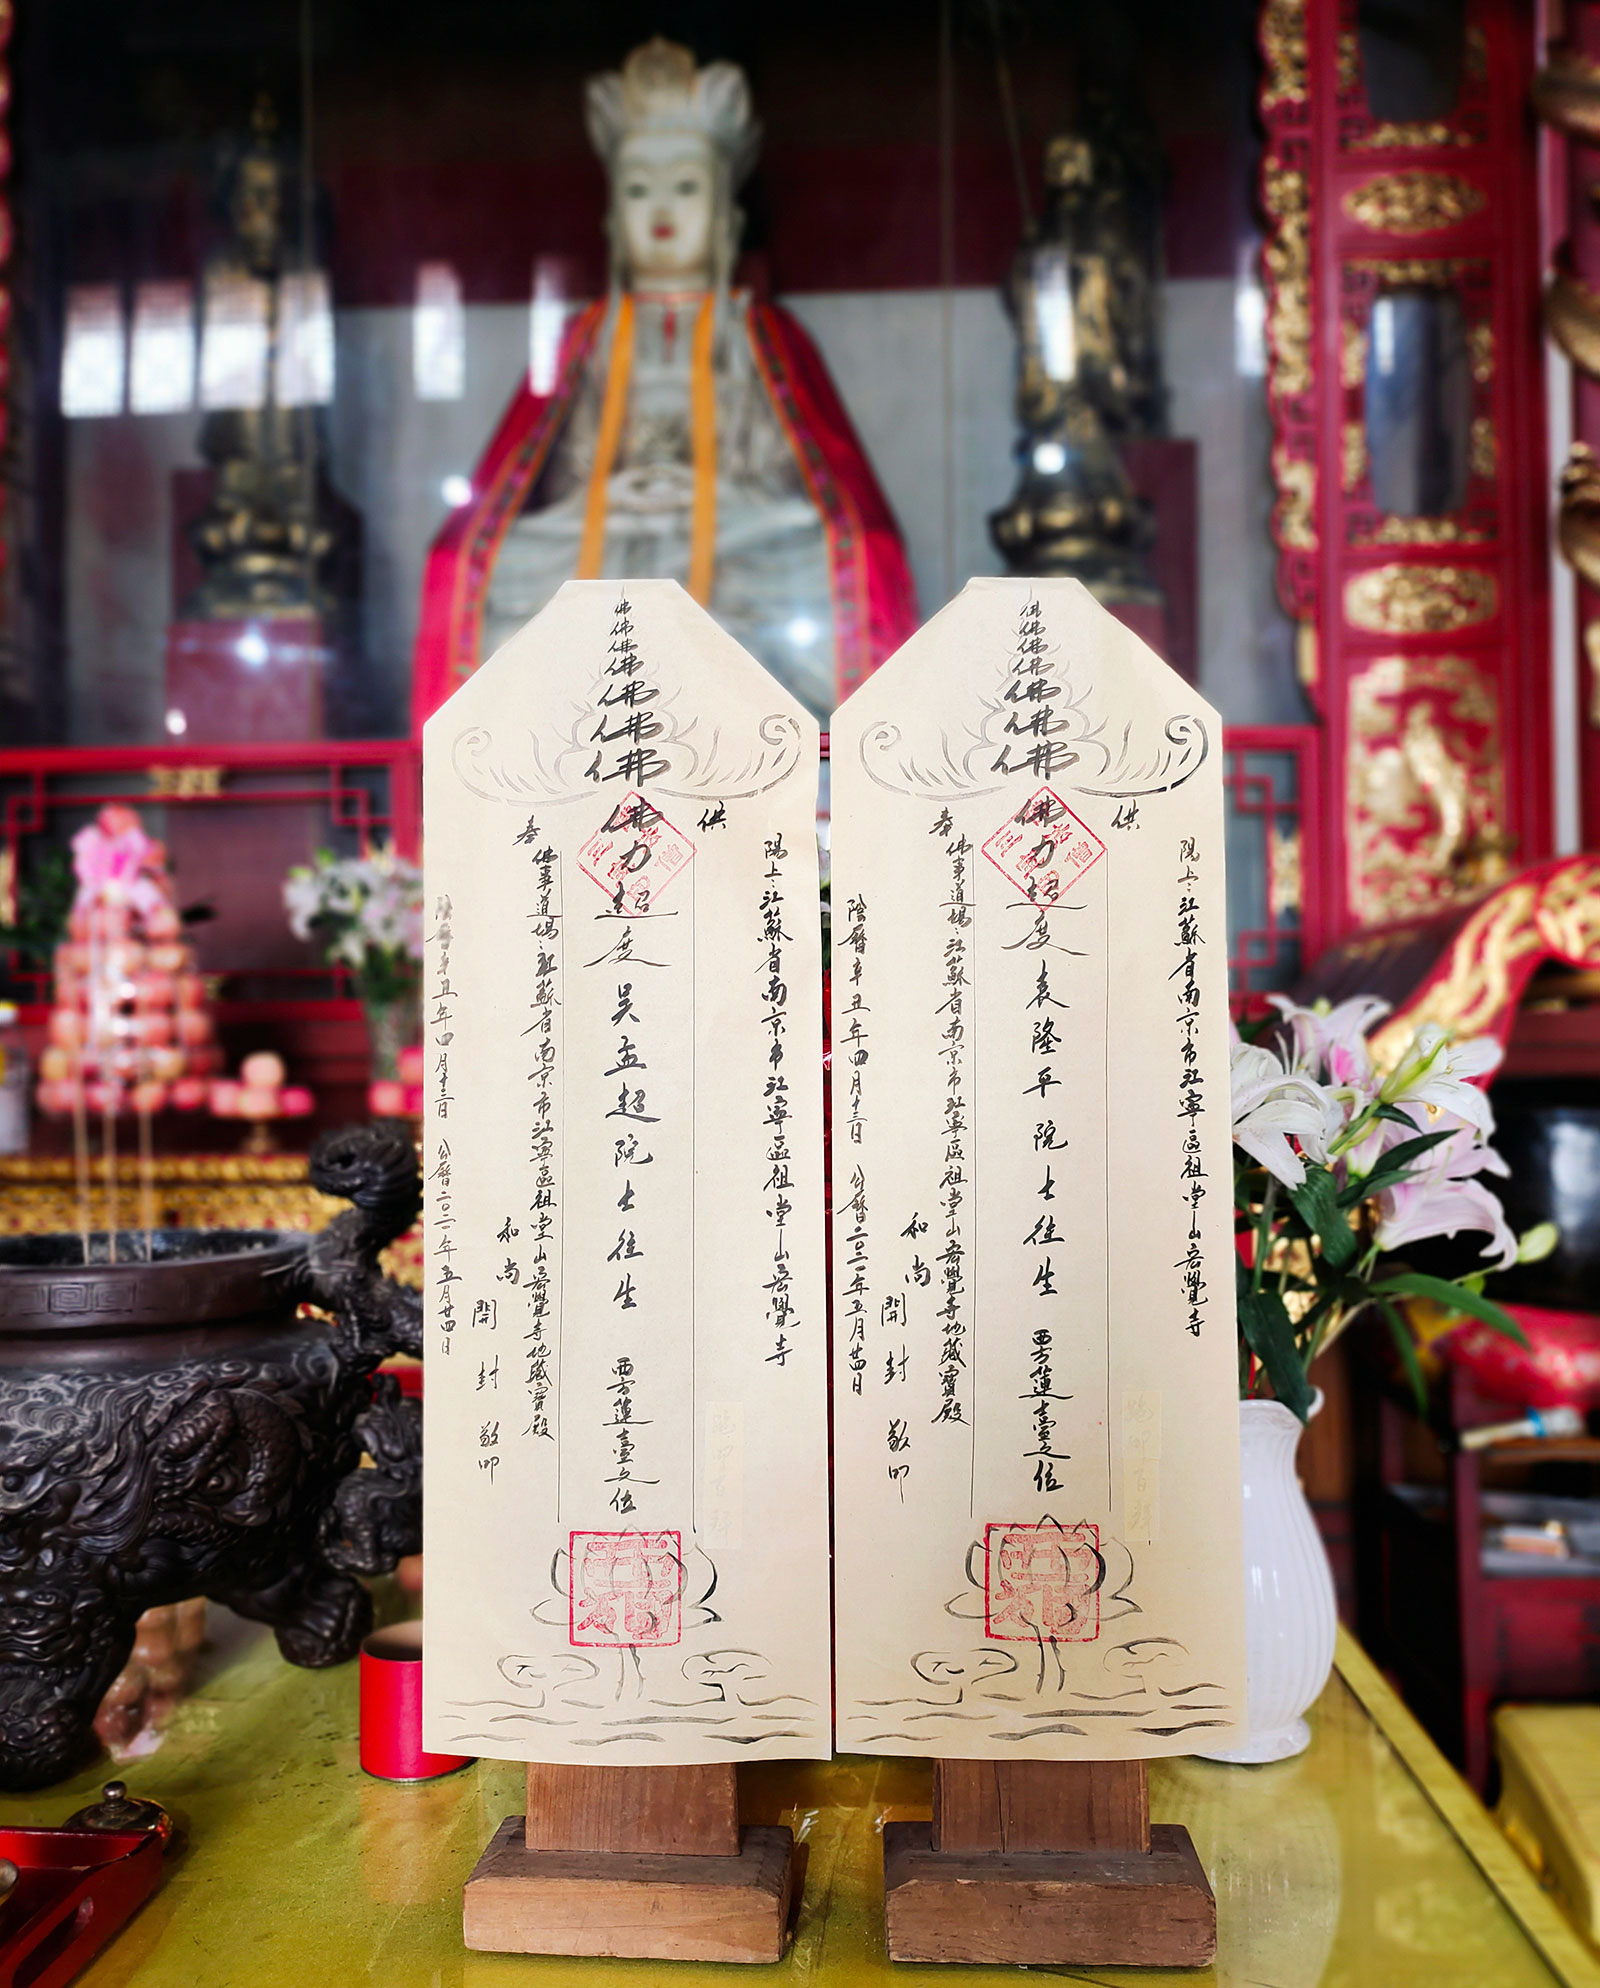 佛
佛
佛
佛
佛
佛
佛
供
奉
陽上：江蘇省南京市江寧區祖堂山宏覺寺
佛力超度吳孟超院士往生 西方蓮臺之位
佛事道場：江蘇省南京市江寧區祖堂山宏覺寺地藏寶殿
和尚開封敬叩
陰曆辛丑年四月十三日 公曆二〇二一年五月廿四日
佛
佛
佛
佛
佛
佛
佛
供
奉
陽上：江蘇省南京市江寧區祖堂山宏覺寺
佛力超度袁隆平院士往生 西方蓮臺之位
佛事道場：江蘇省南京市江寧區祖堂山宏覺寺地藏寶殿
和尚開封敬叩
陰曆辛丑年四月十三日 公曆二〇二一年五月廿四日